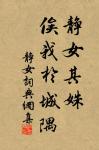 静女其姝
俟我於城隅
静女詞典網集